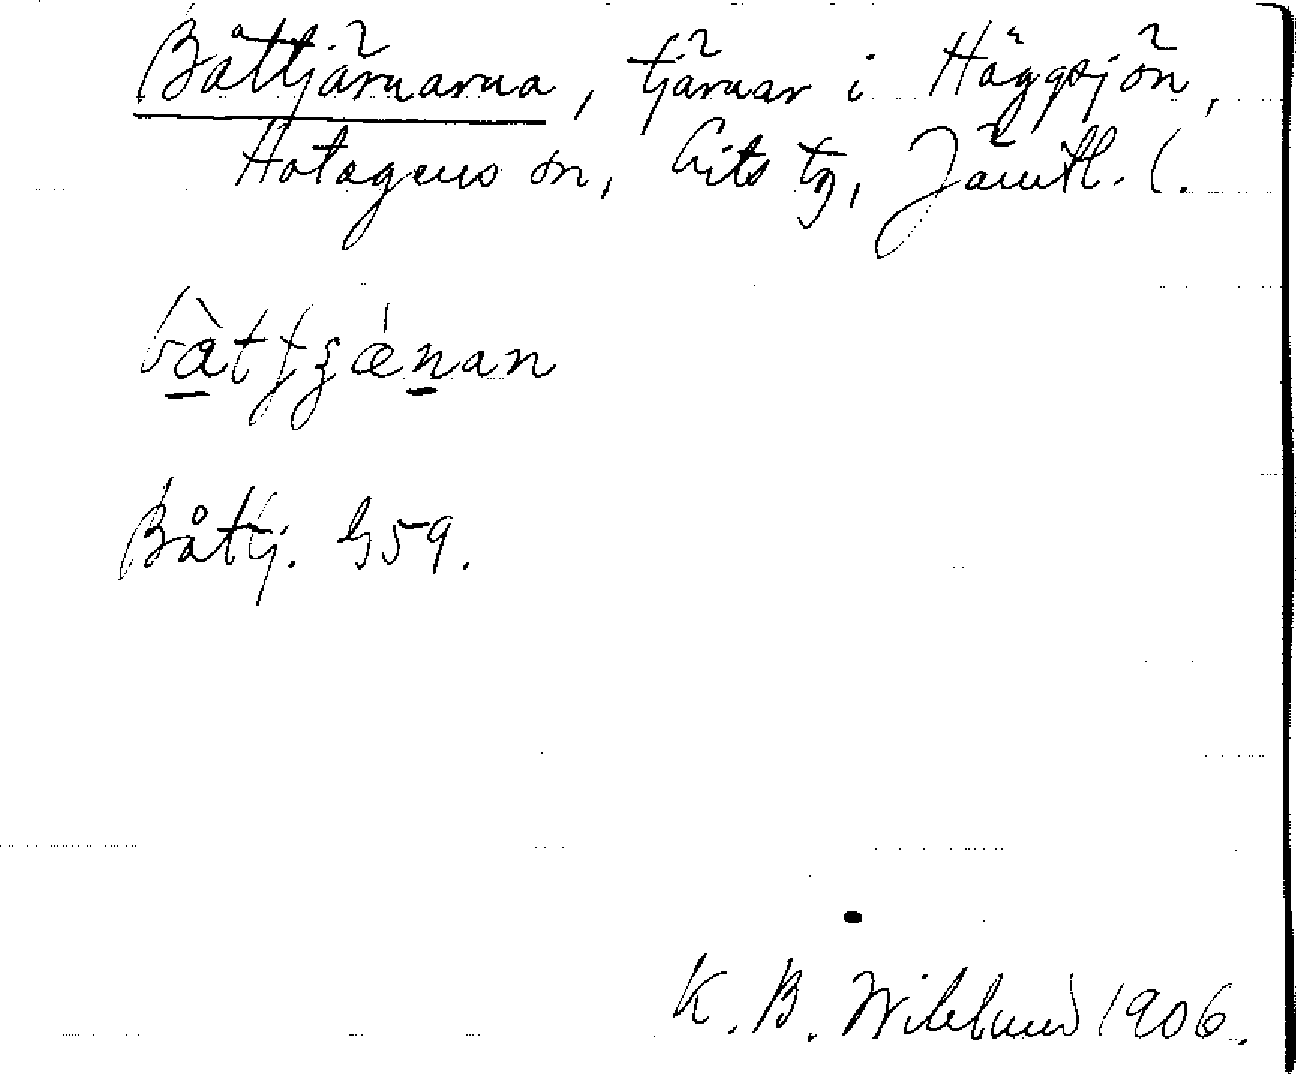 Båttjärnarna, tjärnar i Häggsjön,
Hotagens sn, Lits tg, Jämtl. l.
bàttʒǽnan
Båttj. G59.
K. B. Wiklund 1906.